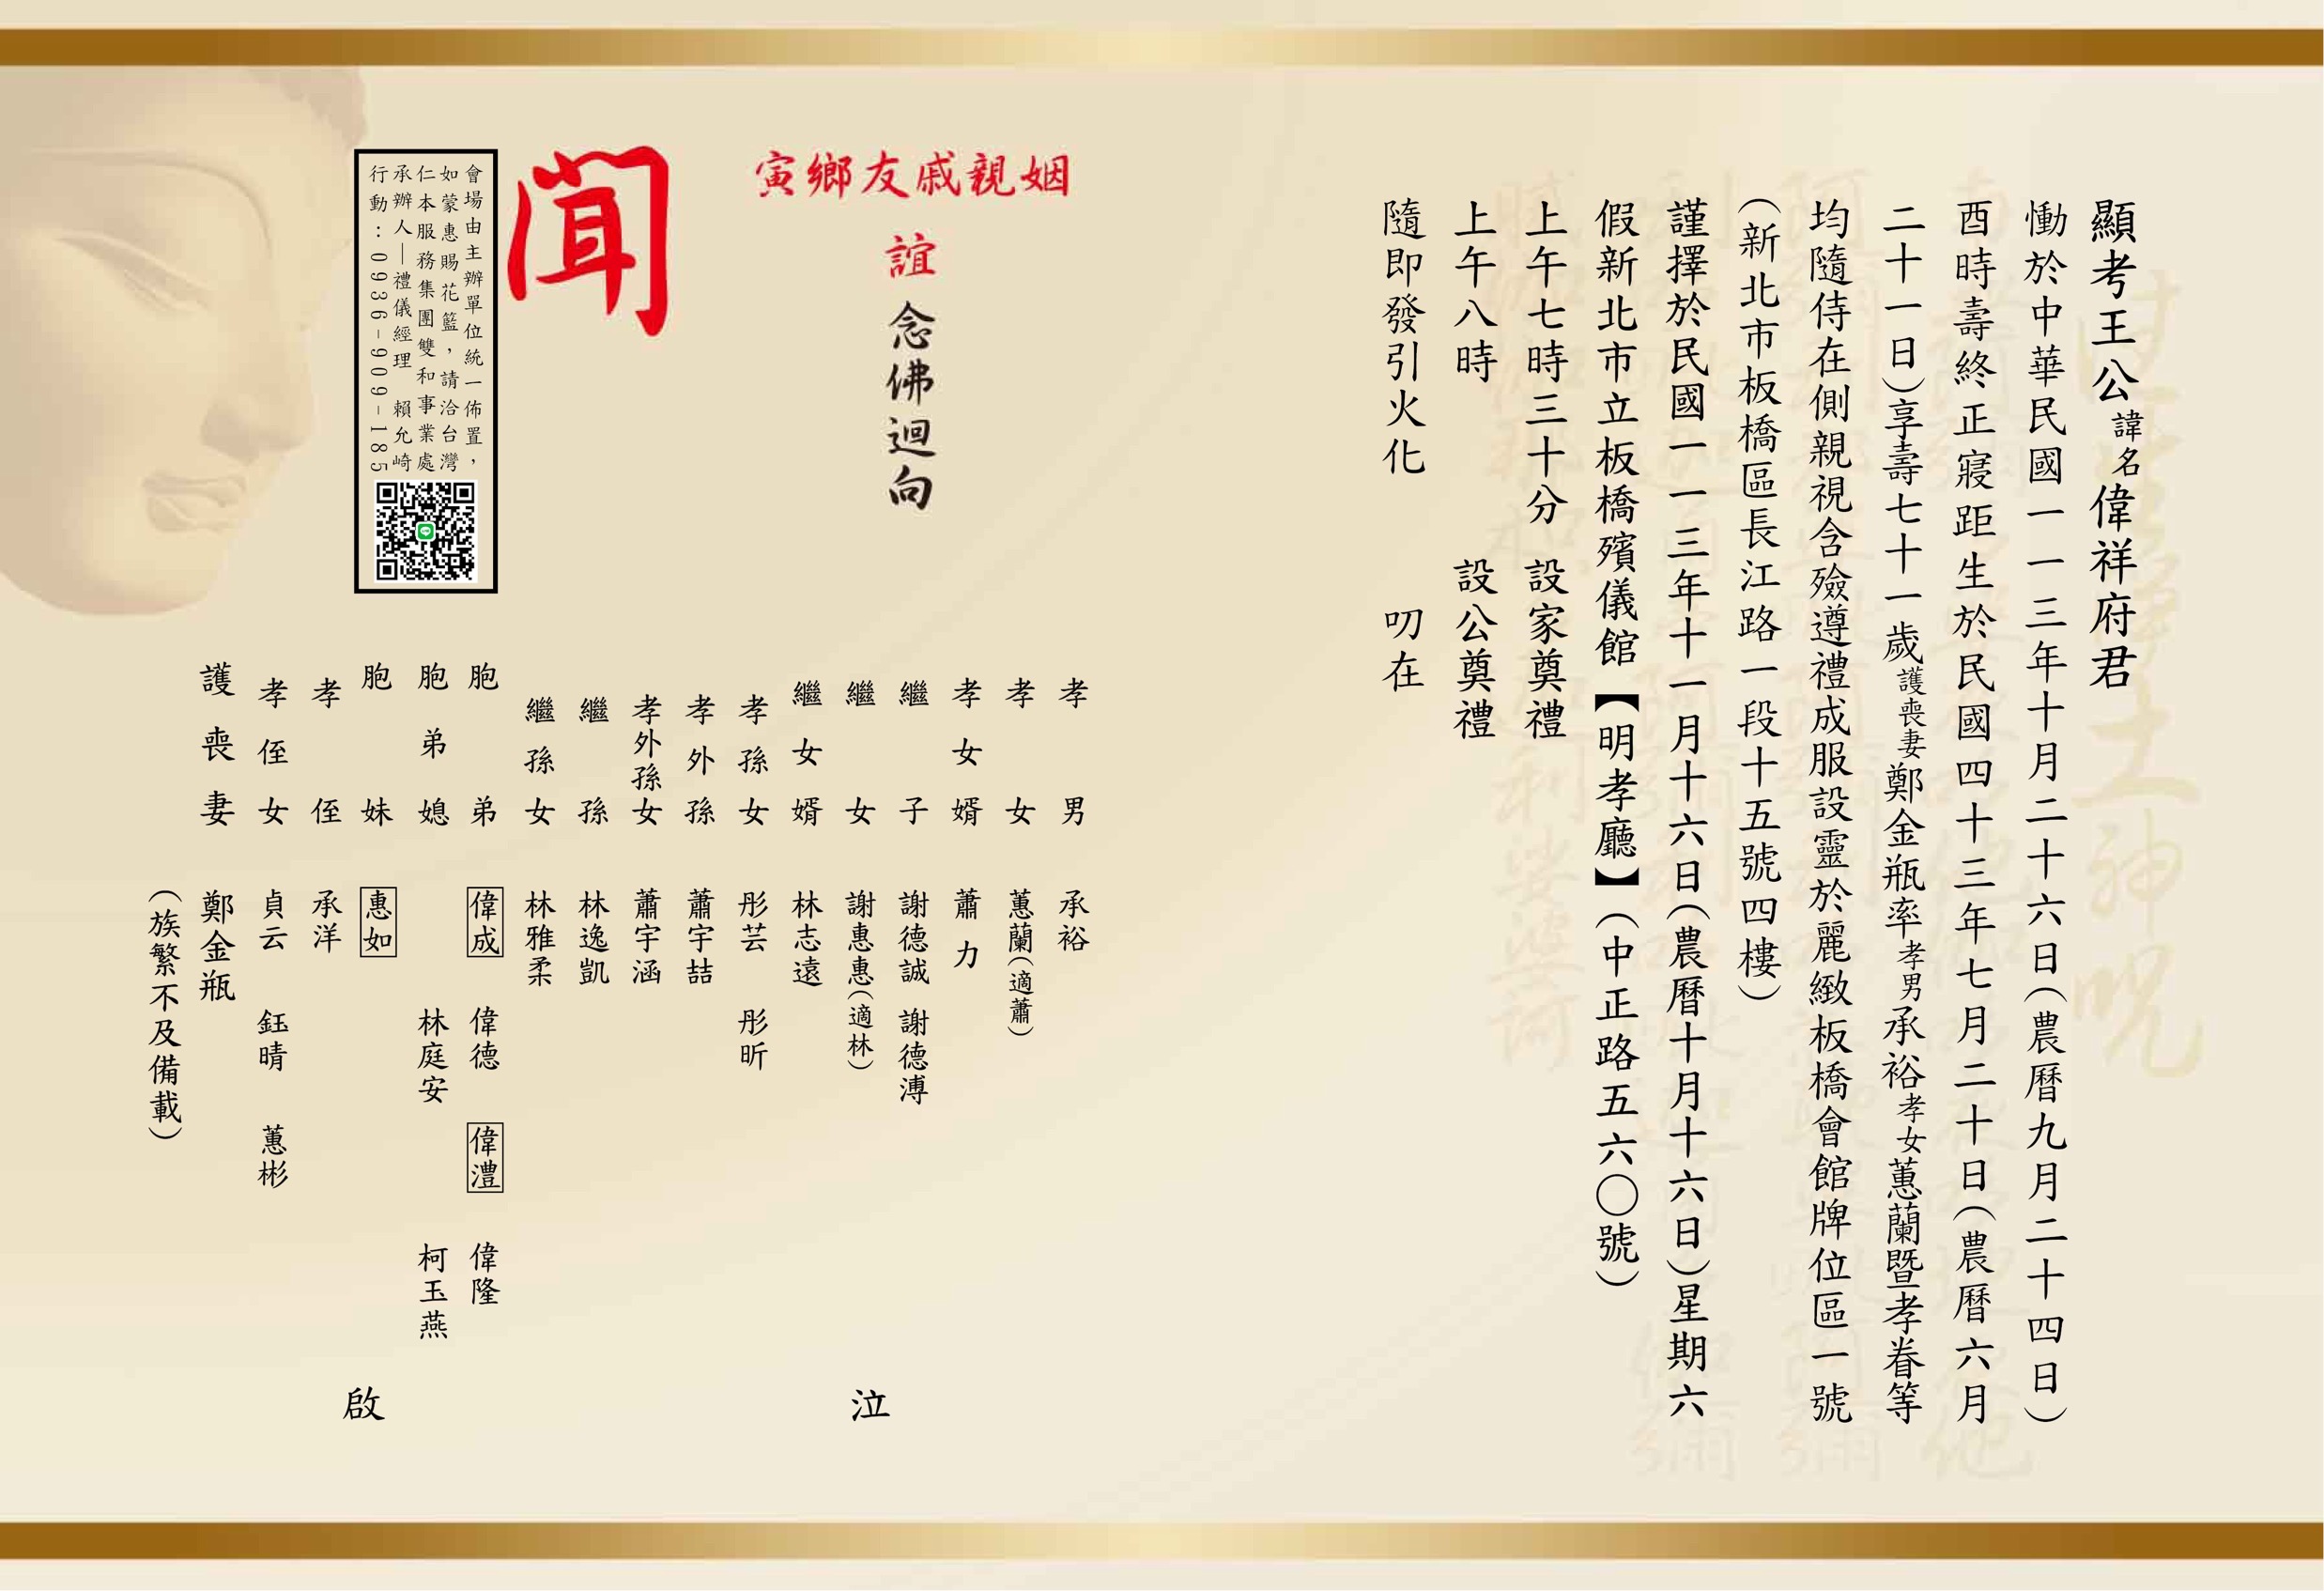 顯考王公諱名偉祥府君
慟於中華民國一一三年十月二十六日(農曆九月二十四日)
酉時壽終正寢距生於民國四十三年七月二十日(農曆六月
二十一日)享壽七十一歲護喪妻鄭金瓶率孝男承裕孝女蕙蘭暨孝眷等
均隨侍在側親視含殮遵禮成服設靈於麗緻板橋會館牌位區一號
(新北市板橋區長江路一段十五號四樓)
謹擇於民國一一三年十一月十六日(農曆十月十六日)星期六
假新北市立板橋殯儀館【明孝廳】(中正路五六〇號)
上午七時三十分 設家奠禮
上午八時 設公奠禮
隨即發引火化 叨在
姻親戚友鄉寅
誼念佛迴向
聞
會場由主辦單位統一佈置，
如蒙惠賜花籃，請洽台灣
仁本服務集團雙和事業處
承辦人—禮儀經理 賴允崎
行動：0936-909-185
孝男 承裕
孝女 蕙蘭(適蕭)
孝女婿 蕭力
繼子 謝德誠 謝德溥
繼女 謝惠惠(適林)
繼女婿 林志遠
孝孫女 彤芸 彤昕
孝外孫 蕭宇喆
孝外孫女 蕭宇涵
繼孫 林逸凱
繼孫女 林雅柔
胞弟 偉成 偉德 偉澧 偉隆
胞弟媳 林庭安 柯玉燕
胞妹 惠如
孝侄 承洋
孝侄女 貞云 鈺晴 蕙彬
護喪妻 鄭金瓶
(族繁不及備載)
泣
啟